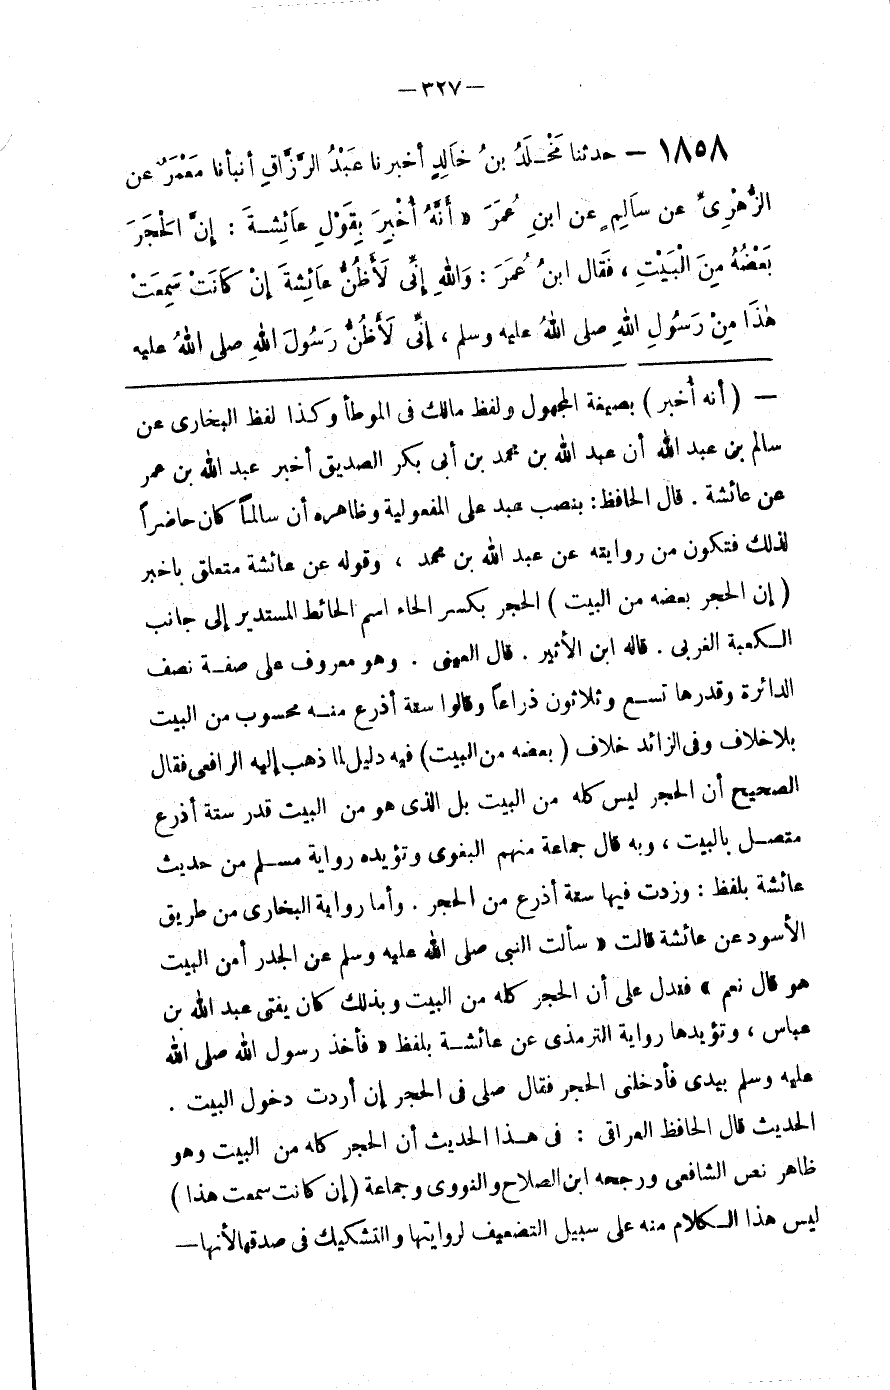 — ٣٢٧ —
١٨٥٨ — حدثنا مَخْـلَدُ بنُ خَالِدٍ أخبرنا عَبْدُ الرَّزَّاقِ أنبأنا مَعْمَرٌ عن
الزُّهْرِىِّ عن سَالِمٍ عن ابنِ عُمَرَ « أَنَّهُ أُخْبِرَ بِقَوْلِ عَائِشَةَ : إِنَّ الْحَجَرَ
بَعْضُهُ مِنَ الْبَيْتِ ، فَقَال ابنُ عُمَرَ : وَاللهِ إِنِّى لَأَظُنُّ عَائِشَةَ إِنْ كَانَتْ سَمِعَتْ
هٰذَا مِنْ رَسُولِ اللهِ صلى اللهُ عليه وسلم ، إِنِّى لَأَظُنُّ رَسُولَ اللهِ صلى اللهُ عليه
— ( أنه أُخبر ) بصيغة المجهول ولفظ مالك فى الموطأ وكذا لفظ البخارى عن
سالم بن عبد الله أن عبد الله بن محمد بن أبى بكر الصديق أخبر عبد الله بن عمر
عن عائشة . قال الحافظ : بنصب عبد على المفعولية وظاهره أن سالماً كان حاضراً
لذلك فتكون من روايته عن عبد الله بن محمد ، وقوله عن عائشة متعلق باخبر
( إن الحجر بعضه من البيت ) الحجر بكسر الحاء اسم الحائط المستدير إلى جانب
الـكعبة الغربى . قاله ابن الأثير . قال العينى . وهو معروف على صفـة نصف
الدائرة وقدرها تسـع وثلاثون ذراعاً وقالوا ستة أذرع منـه محسوب من البيت
بلا خلاف وفى الزائد خلاف ( بعضه من البيت ) فيه دليل لما ذهب إليه الرافعى فقال
الصحيح أن الحجر ليس كله من البيت بل الذى هو من البيت قدر ستة أذرع
متصـل بالبيت ، وبه قال جماعة منهم البغوى وتؤيده رواية مسـلم من حديث
عائشة بلفظ : وزدت فيها ستة أذرع من الحجر . وأما رواية البخارى من طريق
الأسود عن عائشة قالت « سألت النبى صلى الله عليه وسلم عن الجدر أمن البيت
هو قال نعم » فتدل على أن الحجر كله من البيت وبذلك كان يفتى عبد الله بن
عباس ، وتؤيدها رواية الترمذى عن عائشـة بلفظ « فأخذ رسول الله صلى الله
عليه وسلم بيدى فأدخلنى الحجر فقال صلى فى الحجر إن أردت دخول البيت .
الحديث قال الحافظ العراقى : فى هـذا الحديث أن الحجر كله من البيت وهو
ظاهر نص الشافعى ورجحه ابن الصلاح والنووى وجماعة ( إن كانت سمعت هذا )
ليس هذا الـكلام منه على سبيل التضعيف لروايتها والتشكيك فى صدقها لأنها —